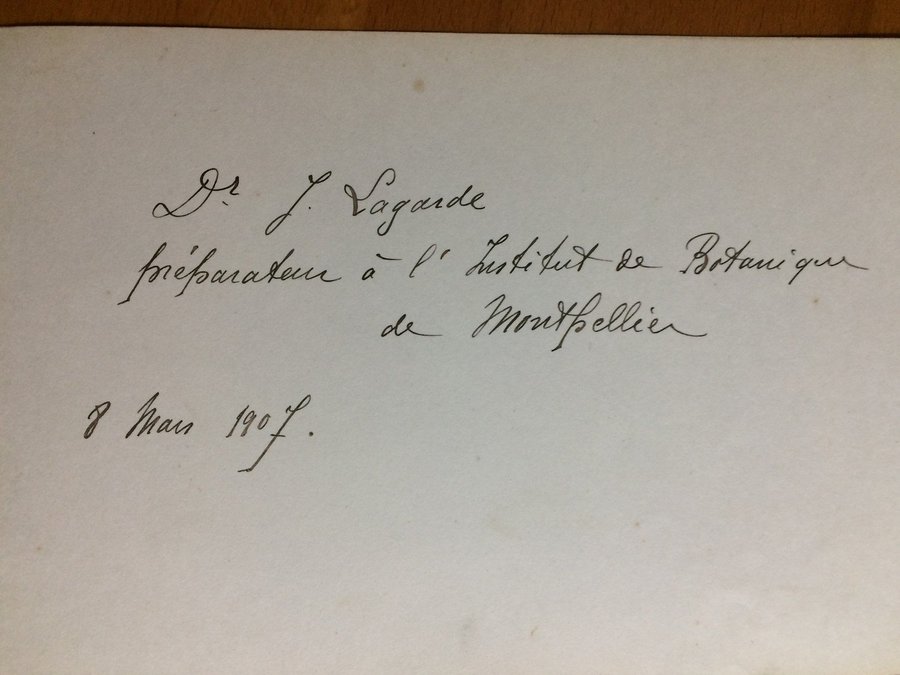 Dr. J. Lagarde
préparateur à l'Institut de Botanique
de Montpellier
8 Mars 1907.